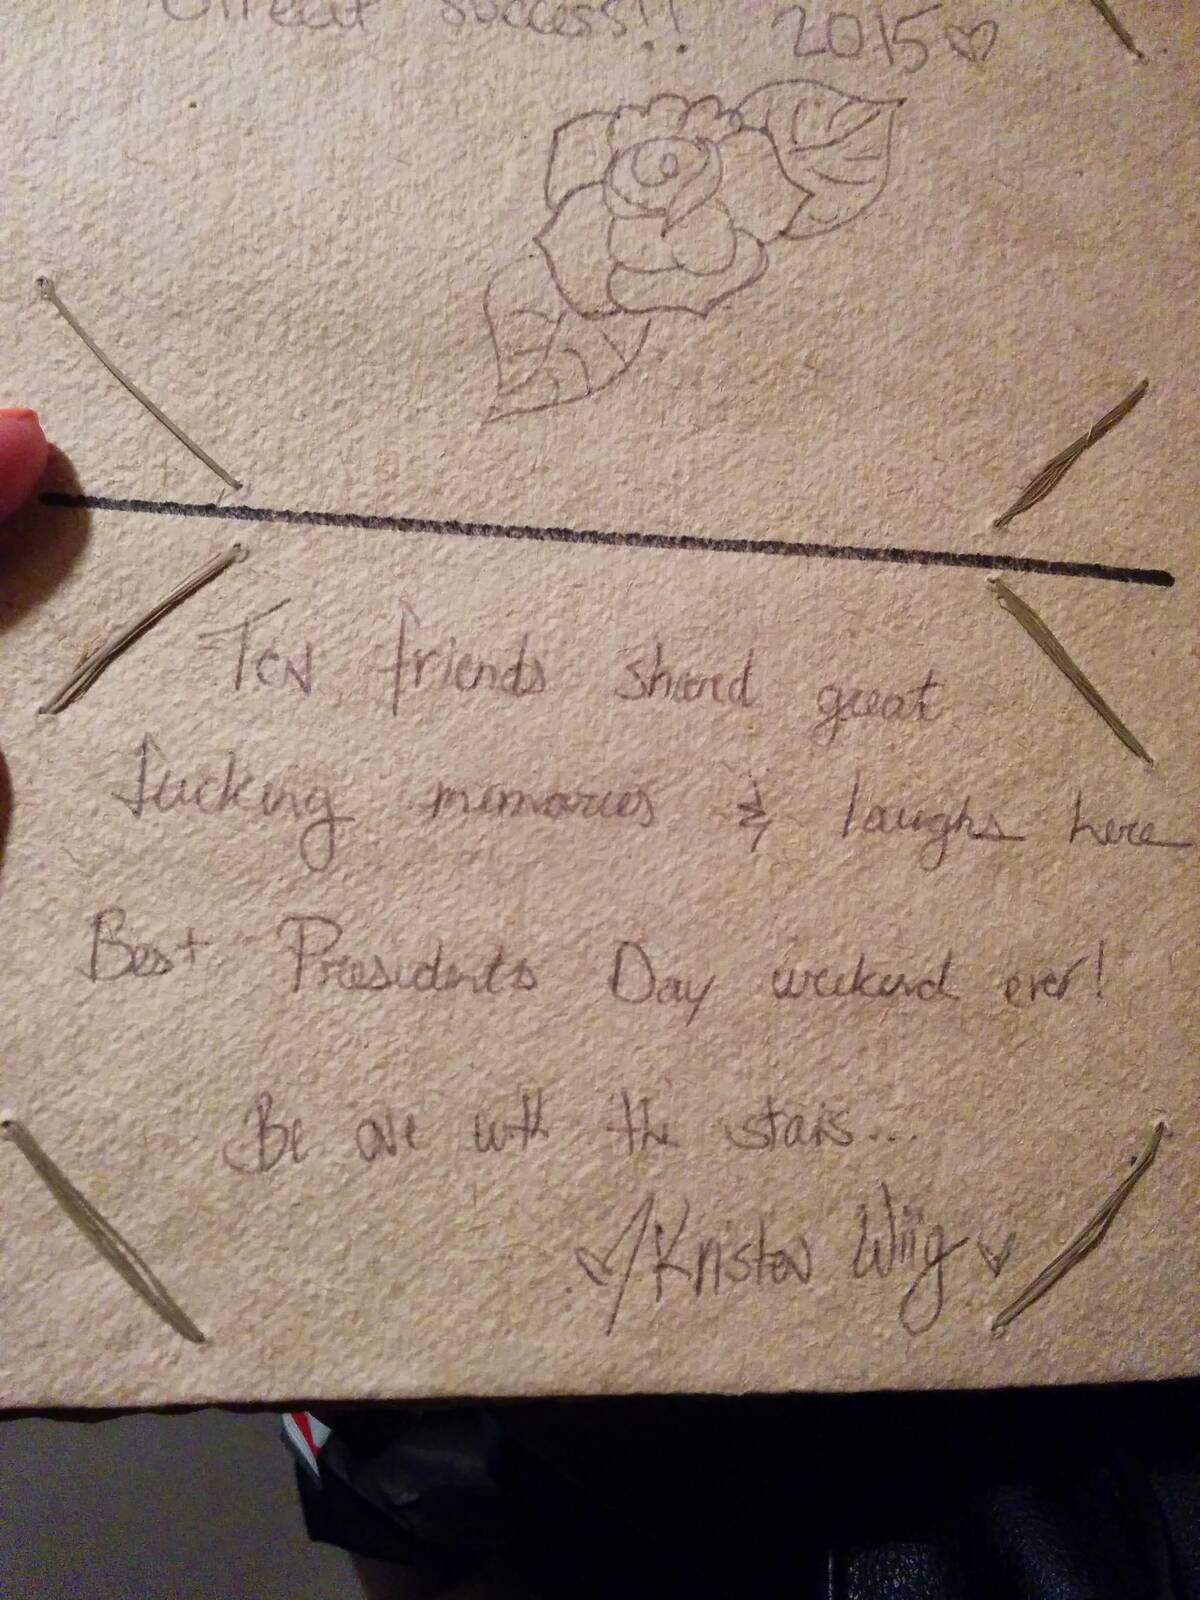 Great success!! 2015♡
Ten friends shared great
fucking memories & laughs here
Best Presidents Day weekend ever!
Be one with the stars...
♡/Kristen Wiig♡